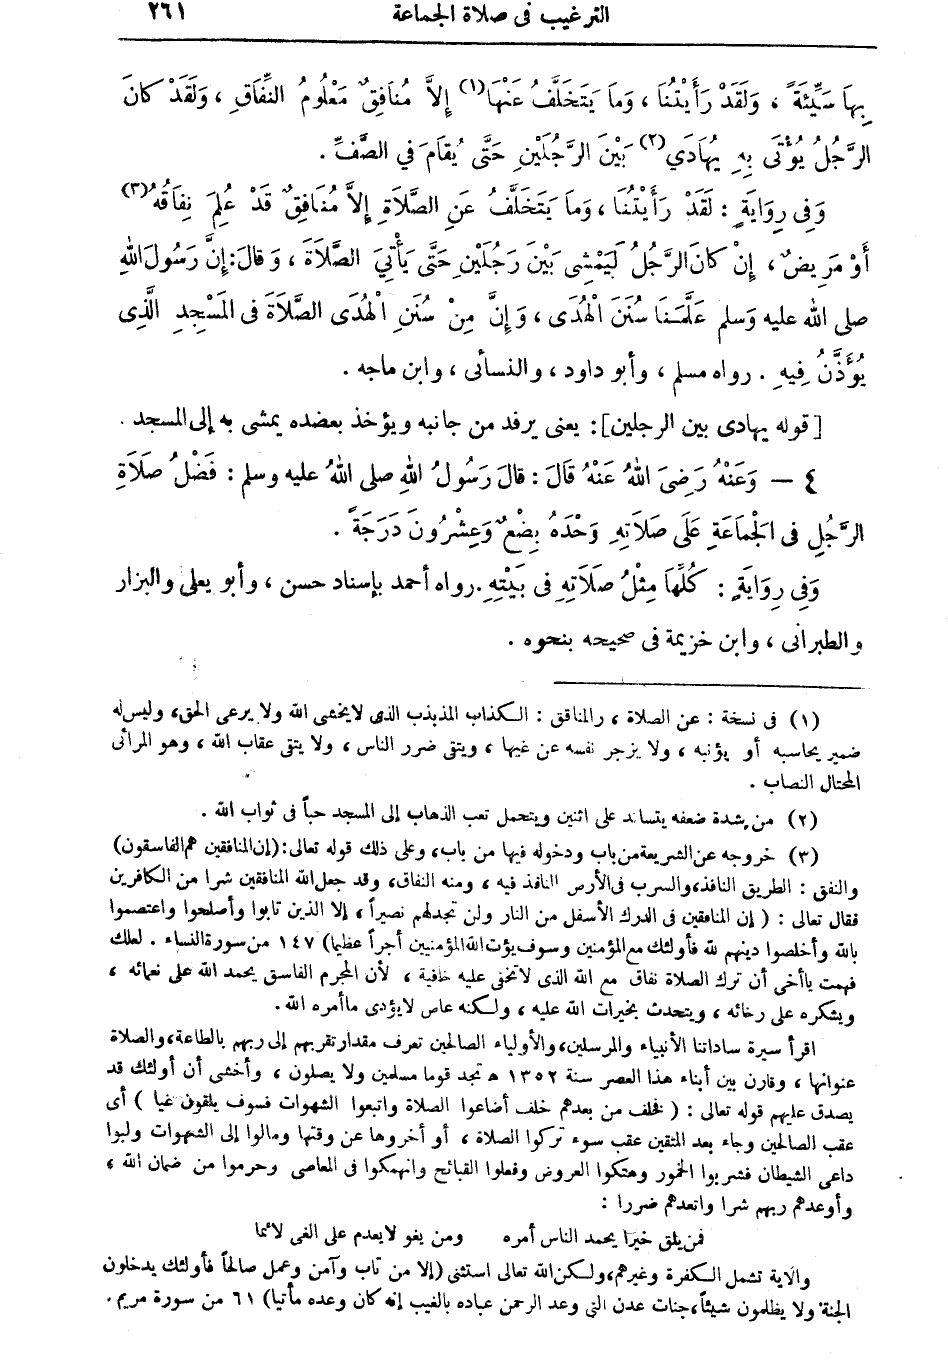 الترغيب فى صلاة الجماعة ٢٦١
بِهَا سَيِّئَةً ، وَلَقَدْ رَأَيْتُنَا ، وَمَا يَتَخَلَّفُ عَنْهَا(١) إِلاَّ مُنَافِقٌ مَعْلُومُ النِّفَاقِ ، وَلَقَدْ كانَ
الرَّجُلُ يُؤْتَى بِهِ يُهَادَي(٢) بَيْنَ الرَّجُلَيْنِ حَتَّى يُقَامَ في الصَّفِّ .
وَفِى رِوَايَةٍ : لَقَدْ رَأَيْتُنَا ، وَمَا يَتَخَلَّفُ عَنِ الصَّلاَةِ إِلاَّ مُنَافِقٌ قَدْ عُلِمَ نِفَاقُهُ(٣)
أَوْ مَرِيضٌ ، إِنْ كانَ الرَّجُلُ لَيَمْشِى بَيْنَ رَجُلَيْنِ حَتَّى يَأْتِيَ الصَّلاَةَ ، وَقالَ : إِنَّ رَسُولَ اللهِ
صلى الله عليه وَسلم عَلَّمَنَا سُنَنَ الْهُدَى ، وَإِنَّ مِنْ سُنَنِ الْهُدَى الصَّلاَةَ فى المَسْجِدِ الَّذِى
يُؤَذَّنُ فِيهِ . رواه مسلم ، وأبو داود ، والنسأئى ، وابن ماجه .
[قوله يهادى بين الرجلين] : يعنى يرفد من جانبه ويؤخذ بعضده يمشى به إلى المسجد .
٤ — وَعَنْهُ رَضِىَ اللهُ عَنْهُ قَالَ : قالَ رَسُولُ اللهِ صلى اللهُ عليه وسلم : فَضْلُ صَلاَةِ
الرَّجُلِ فى الجَمَاعَةِ عَلَى صَلاَتِهِ وَحْدَهُ بِضْعٌ وَعِشْرُونَ دَرَجَةً .
وَفِى رِوَايَةٍ : كُلُّهَا مِثْلُ صَلاَتِهِ فِى بَيْتِهِ . رواه أحمد بإسناد حسن ، وأبو يعلى والبزار
والطبرانى ، وابن خزيمة فى صحيحه بنحوه .
(١) فى نسخة : عن الصلاة ، والمنافق : الكذاب المذبذب الذى لا يخشى الله ولا يرعى الحق ، وليس له
ضمير يحاسبه أو يؤنبه ، ولا يزجر نفسه عن غيها ، ويتقى ضرر الناس ، ولا يتقى عقاب الله ، وهو المرأئى
المحتال النصاب .
(٢) من شدة ضعفه يتساند على اثنين ويتحمل تعب الذهاب إلى المسجد حباً فى ثواب الله .
(٣) خروجه عن الشريعة من باب ودخوله فيها من باب ، وعلى ذلك قوله تعالى : (إن المنافقين هم الفاسقون)
والنفق : الطريق النافذ ، والسرب فى الأرض النافذ فيه ، ومنه النفاق ، وقد جعل الله المنافقين شرا من الكافرين
فقال تعالى : ( إن المنافقين فى الدرك الأسفل من النار ولن تجدلهم نصيراً ، إلا الذين تابوا وأصلحوا واعتصموا
بالله وأخلصوا دينهم لله فأولئك مع المؤمنين وسوف يؤت الله المؤمنين أجراً عظيما) ١٤٧ من سورة النساء . لعلك
فهمت يا أخى أن ترك الصلاة نفاق مع الله الذى لا تخفى عليه خافية ، لأن المجرم الفاسق يحمد الله على نعمائه ،
ويشكره على رخائه ، ويتحدث بخيرات الله عليه ، ولكنه عاص لا يؤدى ما أمره الله .
اقرأ سيرة ساداتنا الأنبياء والمرسلين ، والأولياء الصالحين تعرف مقدار تقربهم إلى ربهم بالطاعة ، والصلاة
عنوانها ، وقارن بين أبناء هذا العصر سنة ١٣٥٢ ه تجد قوما مسلمين ولا يصلون ، وأخشى أن أولئك قد
يصدق عليهم قوله تعالى : ( فخلف من بعدهم خلف أضاعوا الصلاة واتبعوا الشهوات فسوف يلقون غيا ) أى
عقب الصالحين وجاء بعد المتقين عقب سوء تركوا الصلاة ، أو أخروها عن وقتها ومالوا إلى الشهوات ولبوا
داعى الشيطان فشربوا الخمور وهتكوا العروض وفعلوا القبائح وانهمكوا فى المعاصى وحرموا من ضمان الله ،
وأوعدهم ربهم شرا واتعدهم ضررا :
فمن يلق خيرا يحمد الناس أمره ومن يغو لا يعدم على الغى لائما
والآية تشمل الكفرة وغيرهم ، ولكن الله تعالى استثنى (إلا من تاب وآمن وعمل صالحاً فأولئك يدخلون
الجنة ولا يظلمون شيئاً ، جنات عدن التى وعد الرحمن عباده بالغيب إنه كان وعده مأتيا) ٦١ من سورة مريم .